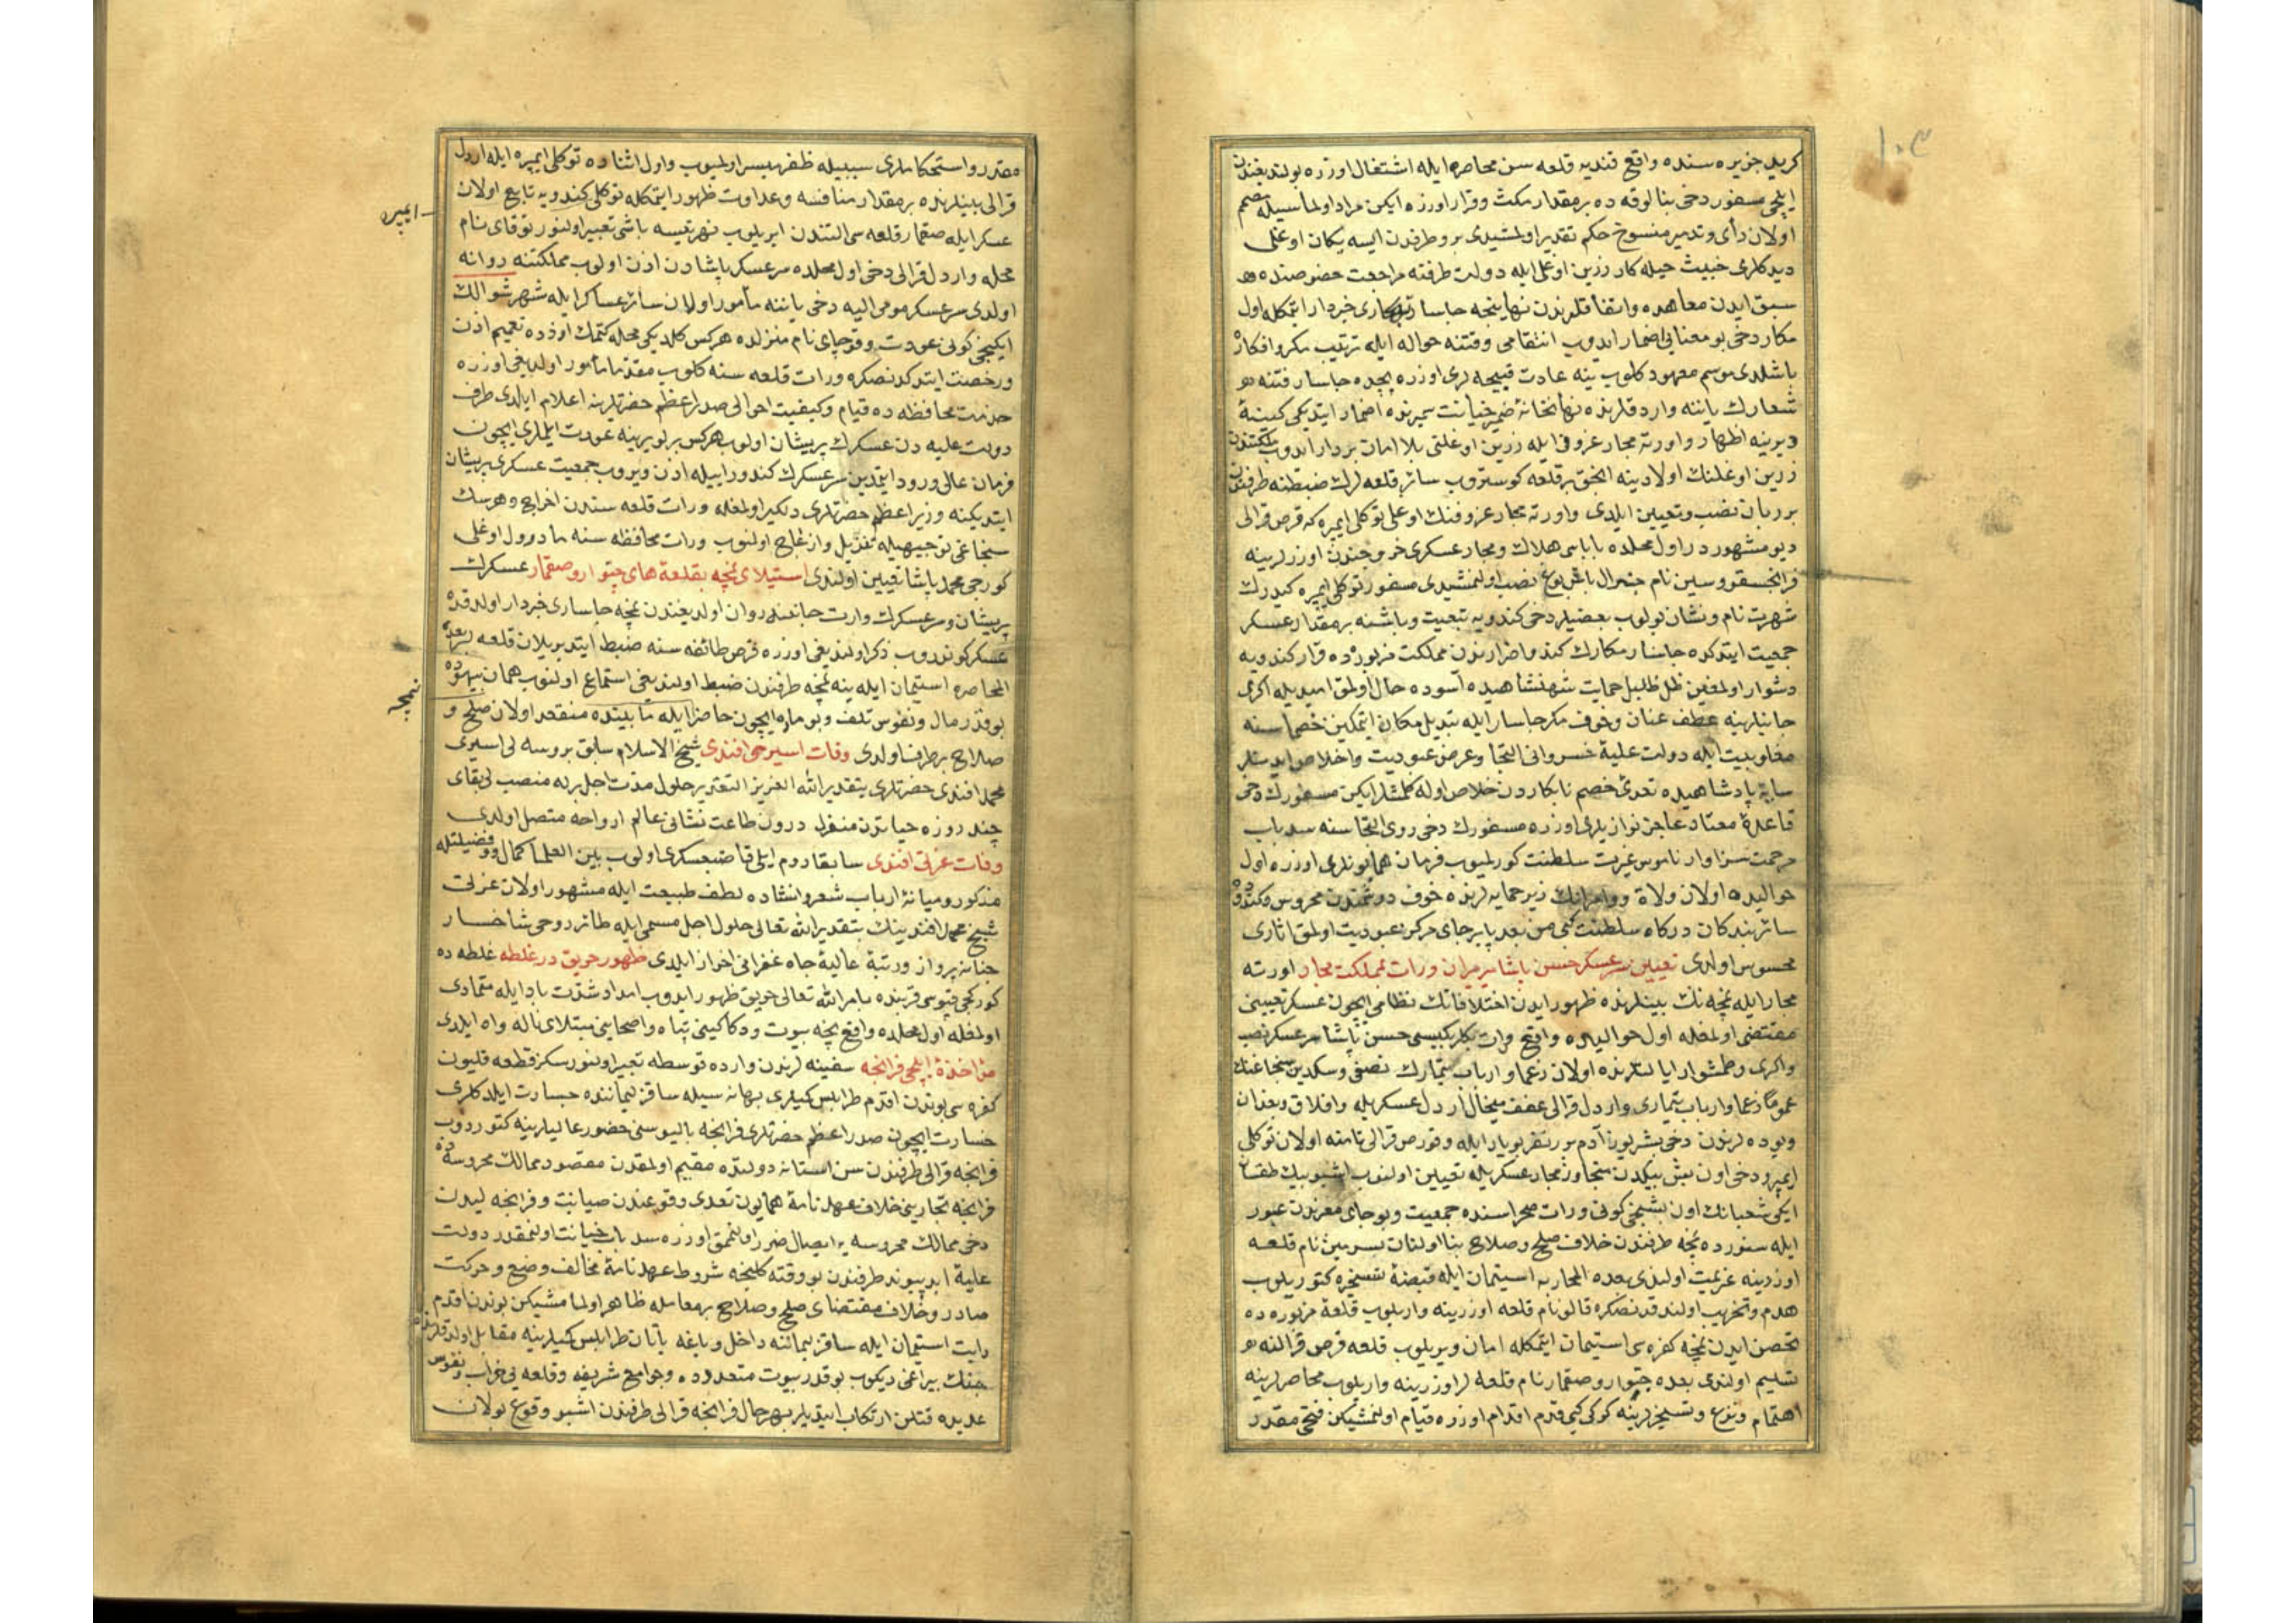 ١٠٣
كريد جزيره سنده واقع قنديه قلعه سن محاصره ايله اشتغال اوزره بولنديغندن
ايلچى مسفور دخى بنالوقه ده بر مقدار مكث وقرار اوزره ايكن مراد اولما سيله مصمم
اولان رأى وتدبير منسوخ حكم تقدير اولمشيدى برو طرفدن اليسه يكان اوغلى
ديدكلرى خبيث حيله كار زرين اوغلى ايله دولت طرفنه مراجعت خصوصنده
سبق ايدن معاهده واتفاقلرندن نهانجه جاسارى خبردار ايتمكله اول
مكار دخى بو معنايى اضمار ايدوب انتقامى وقتنه حواله ايله ترتيب مكر وافكاره
باشلدى موسم معهود كلوب ينه عادت قبيحه لرى اوزره بچده جاسار فتنه
شعارك ياننه واردقلرنده نهانخانۀ ضمير خيانت سميرنده اضمار ايتديكى كينۀ
ديرينه اظهار واورته مجار عزوفى ايله زرين اوغلنى بلا امان بردار ايدوب
زرين اوغلنك اولادينه انجق بر قلعه كوستروب سائر قلعه لرك ضبطنه طرفندن
بر ربان نصب وتعيين ايلدى واورته مجار عزوفنك اوغلى توكلى ايمره كه قرص قرالى
ديو مشهور در اول محلده باباسى هلاك ومجار عسكرى خرمن جندن اوزرلرينه
فرانجسقو وسين نام جنرال باش بوغ نصب اولنمشيدى مسفور توكلى ايمره كيدرك
شهرت نام ونشان بولوب بعضيلر دخى كندويه تبعيت وباشنه بر مقدار عسكر
جمعيت ايتدكده جاسار مكارك كيد واضرارندن مملكت مزبورده قرار كندويه
دشوار اولمغين ظل ظليل حمايت شهنشاهيده آسوده حال اولمق اميديله اكرى
جانبلرينه عطف عنان وخوف مكر جاسار ايله تبديل مكان ايتمكين خصماسنه
مغلوبيت ايله دولت عليۀ خسروانى التجا وعرض عبوديت واخلاص ايدنلر
سايۀ پادشاهيده تعدئ خصم نابكاردن خلاص اوله كلمشلر ايكن مسفورك دخى
قاعدۀ معتاد عاجز نوازيلرى اوزره مسفورك دخى روى التجاسنه سد باب
مرحمت سزاوار ناموس غيرت سلطنت كورلميوب فرمان همايونلرى اوزره اول
حواليده اولان ولاة وامرانك زير حمايه لرنده خوف دشمندن محروس
سائر بندكان دركاه سلطنت كبى من بعد پا برجاى مركز عبوديت اولمق اثارى
محسوس اولدى تعيين سرعسكر حسن پاشا ميرميران ورات بمملكت مجار اورته
مجار ايله نمچه نك بينلرنده ظهور ايدن اختلافاتك نظامى ايچون عسكر تعيينى
مقتضى اولمغله اول حواليده واقع وارات بكلربكيسى حسن پاشا سرعسكر نصب
واكرى وطمشوار ايالتلرنده اولان زعما وارباب تيمارك نصفى وسكدين سنجاغنك
عموما زعما وارباب تيمارى واردل قرالى عفف ميخال اردل عسكريله وافلاق وبغدان
ويوده لرندن دخى بشر يوز آدم برر نفر بويار ايله وقورص قرالى نامنه اولان توكلى
ايمره دخى اون بش بيكدن متجاوز مجار عسكريله تعيين اولنوب اشبو بيك طقسان
ايكى شعبانك اون بشنجى كونى ورات صحراسنده جمعيت وبوجاى معزندن عبور
ايله سنورده نمچه طرفندن خلاف صلح وصلاح بنا اولنان بسرمين نام قلعه
اوزرينه عزيمت اولندى بعده المحاربه استيمان ايله قبضۀ تسخيره كتوريلوب
هدم وتخريب اولندقدنصكره قالو نام قلعه اوزرينه واريلوب قلعۀ مزبوره ده
تحصن ايدن نمچه كفره سى استيمان ايتمكله امان ويريلوب قلعه قرص قرالنه
تسليم اولندى بعده جتوار وصقمار نام قلعه لر اوزرينه واريلوب محاصرلرينه
اهتمام ونزع وتسخيرلرينه كوكى كبى قدم اقدام اوزره قيام اولنمشيكن فتحى مقدر
مقدر واستحكاملرى سببيله ظفر ميسر اولميوب واول اثناده توكلى ايمره ايله اردل
قرالى بينلرنده بر مقدار منافسه وعداوت ظهور ايتمكله توكلى كندويه تابع اولان
ايمره
عسكر ايله صقمار قلعه سى التندن ايريلوب نهر تيسه باشى تعبير اولنور توقاى نام
محله واردل قرالى دخى اول محلده سرعسكر پاشادن اذن اولوب مملكتنه روانه
اولدى سرعسكر مومى اليه دخى ياننه مأمور اولان سائر عساكر ايله شهر شوالك
ايكنجى كونى عودت وقوجاى نام منزلده هركس كلديكى محله كتمك اوزره تعميم اذن
ورخصت ايتدكدنصكره ورات قلعه سنه كلوب مقدما مأمور اولديغى اوزره
خدمت محافظه ده قيام وكيفيت احوالى صدر اعظم حضرتلرينه اعلام ايلدى طرف
دولت عليه دن عسكرك پريشان اولوب هركس يرلو يرينه عودت ايلملرى ايچون
فرمان عالى ورود ايتمدين سرعسكرك كندو رأييله اذن ويروب جمعيت عسكرى پريشان
ايتديكنه وزير اعظم حضرتلرى دلكير اولمغله ورات قلعه سندن اخراج وهرسك
سنجاغى توجيهيله تنزيل وازعاج اولنوب ورات محافظه سنه مادورل اوغلى
كورجى محمد پاشا تعيين اولندى استيلاى نمچه بقلعه هاى جتوار وصقمار عسكرك
پريشان وسرعسكرك وارت جانبنه روان اولديغندن نمچه جاسارى خبردار اولدقده
عسكر كوندروب ذكر اولنديغى اوزره قرص طائفه سنه ضبط ايتديريلان قلعه لر بعد
المحاصره استيمان ايله ينه نمچه طرفندن ضبط اولنديغى استماع اولنوب همان بيهوده
نمچه
بو قدر مال ونفوس تلف وبو ماده ايچون حاضر ايله مابينده منعقد اولان صلح و
صلاح برطرف اولدى وفات اسيرى افندى شيخ الاسلام سابق بروسه لى اسيرى
محمد افندى حضرتلرى بتقدير الله العزيز القدير حلول مدت اجل ايله منصب بقاى
چند روزه حياتدن منفصل درون طاعت نشانى عالم ارواحه متصل اولدى
وفات عزتى افندى سابقا روم ايلى قاضيعسكرى اولوب بين العلما كمال وفضيلتله
مذكور وميانۀ ارباب شعر وانشاده لطف طبيعت ايله مشهور اولان عزتى
شيخ محمد افندينك بتقدير الله تعالى حلول اجل مسمى ايله طائر روحى شاخسار
جنانه پرواز ورتبۀ عاليۀ جاه غفرانى احراز ايلدى ظهور حريق در غلطه غلطه ده
كوركجى قپوسى قربنده بامر الله تعالى حريق ظهور ايدوب امداد شدت باد ايله متمادى
اولمغله اول محلده واقع نيجه بيوت ودكاكينى تباه واصحابنى مبتلاى ناله واه ايلدى
مؤاخذۀ ايلچى فرانچه سفينه لرندن وارده توسطه تعبير اولنور سكز قطعه قليون
كفره سى بوندن اقدم طرابلس كميلرى بهانه سيله ساقز ليماننده جسارت ايلدكلرى
خسارت ايچون صدر اعظم حضرتلرى فرانچه باليوسنى حضور عاليلرينه كتوردوب
فرانچه قرالى طرفندن سن استانۀ دولتده مقيم اولمقدن مقصود ممالك محروسه ده
فرانچه تجارينى خلاف عهدنامۀ همايون تعدى وقوعندن صيانت وفرانچه ليدن
دخى ممالك محروسه يه ايصال ضرر اولنممق اوزره سد باب خيانت اولنمقدر دولت
عليۀ ابد پيوند طرفندن بو وقته كلنجه شروط عهدنامۀ مخالف وضع وحركت
صادر وخلاف مقتضاى صلح وصلاح بر معامله ظاهر اولمامشيكن بوندن اقدم
رايت استيمان ايله ساقز ليماننه داخل وياغه ياتان طرابلس كميلرينه مقابل اولدقلرنده
جنك بيراغى ديكوب بو قدر بيوت متعدده وجوامع شريفه وقلعه يى خراب ونفوس
عديده قتلن ارتكاب ايتديلر بهرحال فرانچه قرالى طرفندن اشبو وقوع بولان